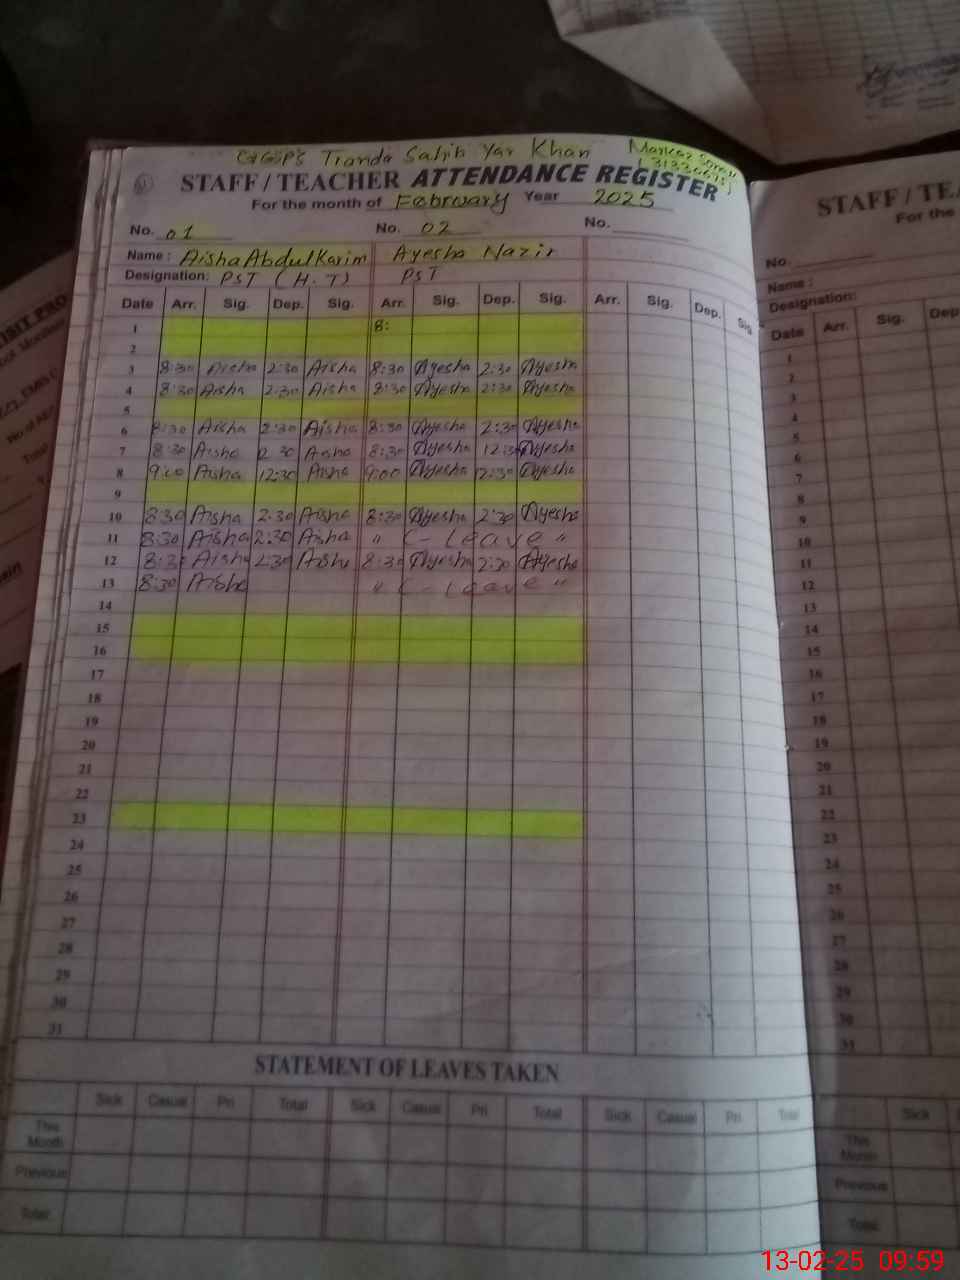 GGPS Tranda Sahib Yar Khan Markaz
STAFF / TEACHER ATTENDANCE REGISTER
For the month of February Year 2025
No. 01 No. 02 No.
Name : Aisha Abdul Karim Ayesha Nazir
Designation: PST (H.T) PST
Date Arr. Sig. Dep. Sig. Arr. Sig. Dep. Sig. Arr. Sig. Dep. Sig
1 8:
2
3 8:30 Aisha 2:30 Aisha 8:30 Ayesha 2:30 Ayesha
4 8:30 Aisha 2:30 Aisha 8:30 Ayesha 2:30 Ayesha
5
6 8:30 Aisha 2:30 Aisha 8:30 Ayesha 2:30 Ayesha
7 8:30 Aisha 2 30 Aisha 8:30 Ayesha 12:30 Ayesha
8 9:00 Aisha 12:30 Aisha 9:00 Ayesha 12:30 Ayesha
9
10 8:30 Aisha 2:30 Aisha 8:30 Ayesha 2:30 Ayesha
11 8:30 Aisha 2:30 Aisha " C-Leave "
12 8:30 Aisha 2:30 Aisha 8:30 Ayesha 2:30 Ayesha
13 8:30 Aisha " C-Leave "
14
15
16
17
18
19
20
21
22
23
24
25
26
27
28
29
30
31
STATEMENT OF LEAVES TAKEN
Sick Casual Pri Total Sick Casual Pri Total Sick Casual Pri Total
This Month
Previous
Total
STAFF / TEA
For the
No.
Name :
Designation:
Date Arr. Sig. Dep
1
2
3
4
5
6
7
8
9
10
11
12
13
14
15
16
17
18
19
20
21
22
23
24
25
26
27
28
29
30
31
Sick
This Month
Previous
Total
VISIT PRO
13-02-25 09:59